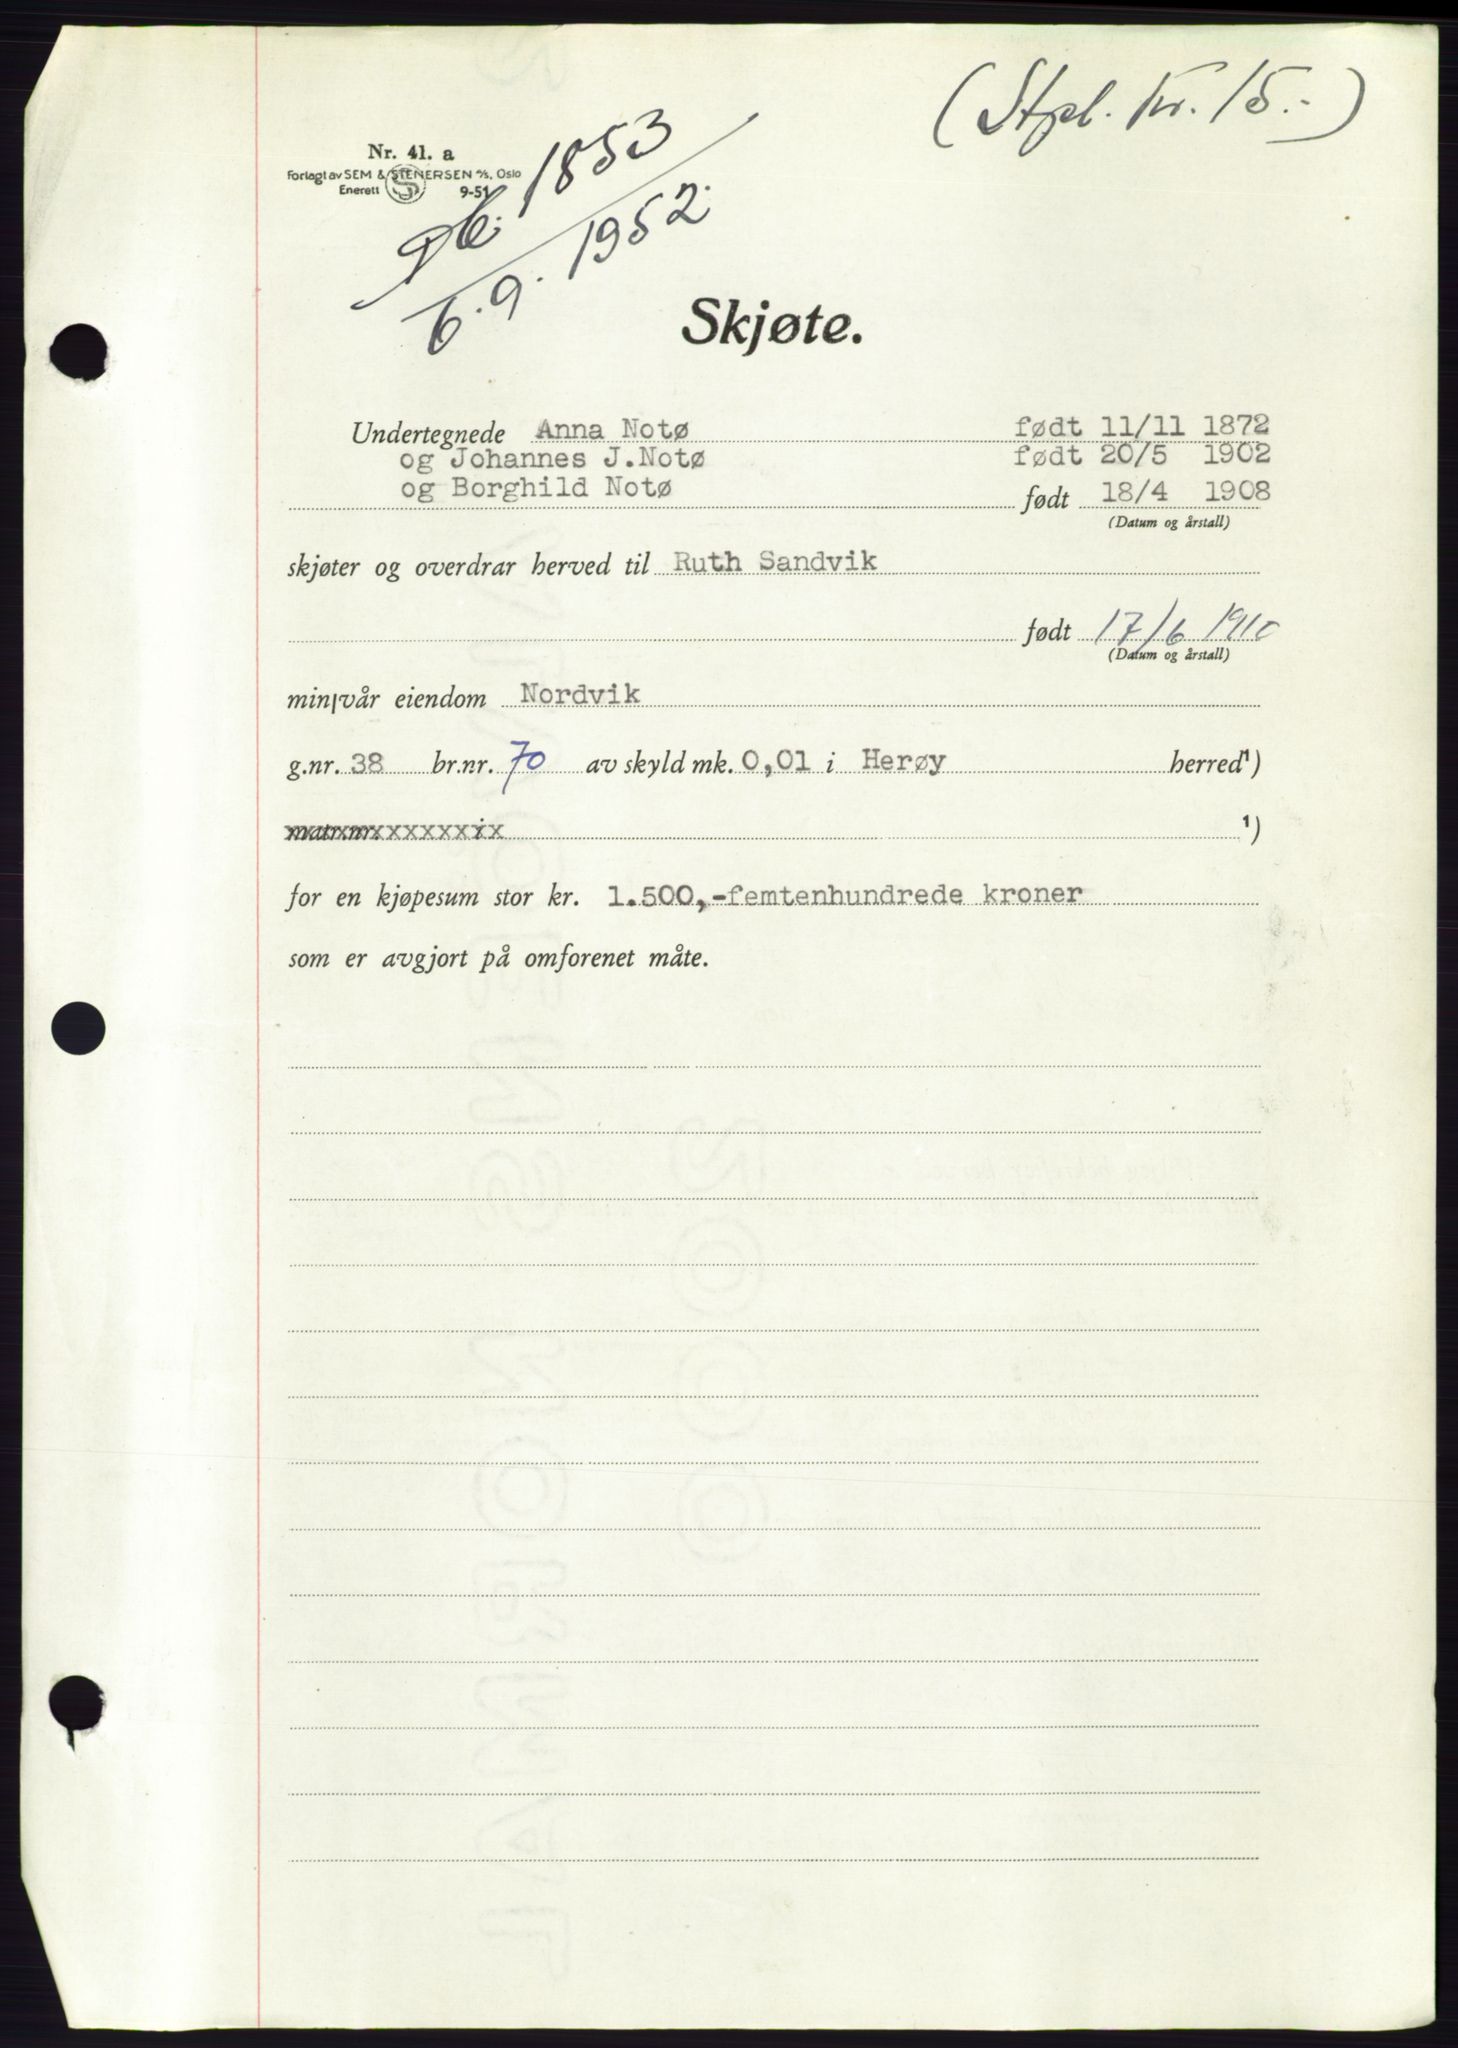 (Stpl. kr. 15.-)
Nr. 41. a
Forlagt av SEM & STENERSEN A/S, Oslo
Enerett 9-51
Db. 1853
6.9. 1952.
Skjøte.
Undertegnede Anna Notø født 11/11 1872
og Johannes J.Notø født 20/5 1902
og Borghild Notø født 18/4 1908
(Datum og årstall)
skjøter og overdrar herved til Ruth Sandvik
født 17/6 1910
(Datum og årstall)
min/vår eiendom Nordvik
g.nr. 38 br.nr. 70 av skyld mk. 0,01 i Herøy herred¹)
matr.nr. i ¹)
for en kjøpesum stor kr. 1.500,-femtenhundrede kroner
som er avgjort på omforenet måte.